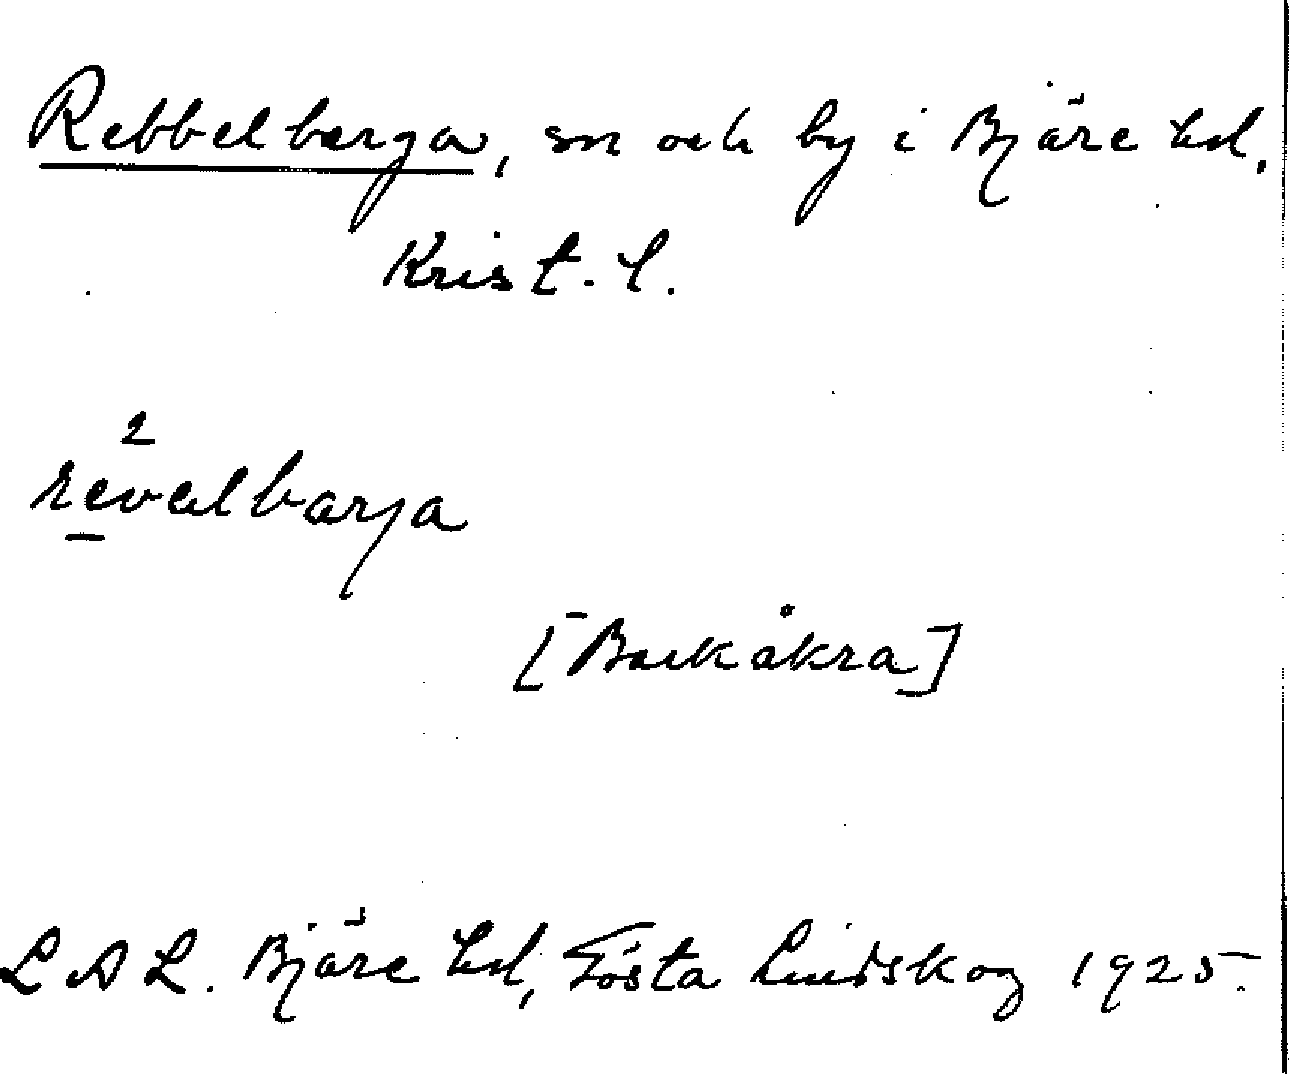 Rebbelberga, sn och by i Bjäre hd,
Krist. l.
2
revəlbarja
[Barkåkra]
L A L. Bjäre hd, Gösta Lindskog 1925.